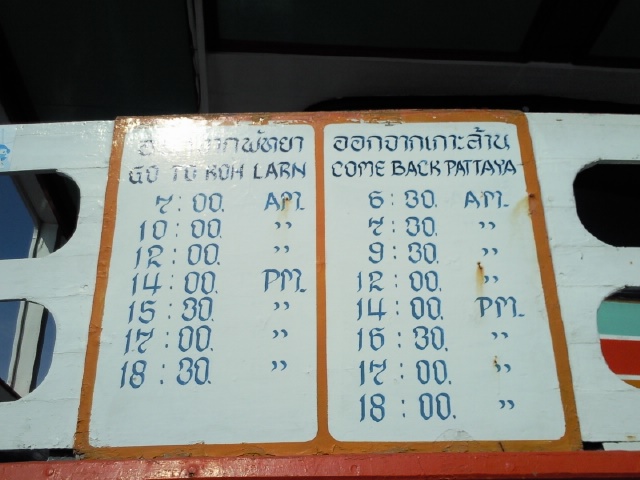 ออกจากพัทยา
GO TO KOH LARN
7:00. AM.
10:00. ”
12:00. ”
14:00. PM.
15:30. ”
17:00. ”
18:30. ”
ออกจากเกาะล้าน
COME BACK PATTAYA
6:30. AM.
7:30. ”
9:30. ”
12:00. ”
14:00. PM.
16:30. ”
17:00. ”
18:00. ”